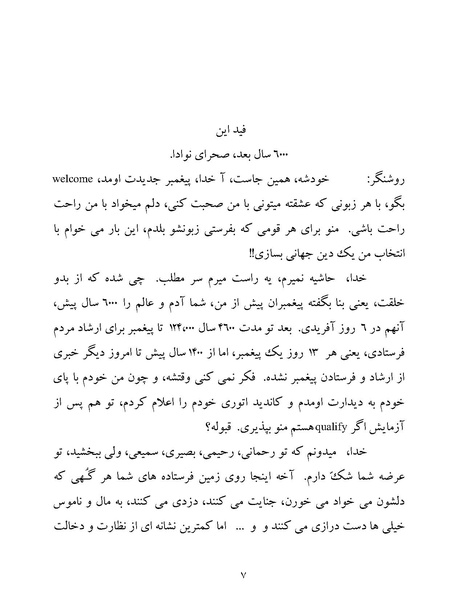 فید این
۶۰۰۰ سال بعد، صحرای نوادا.
روشنگر: خودشه، همین جاست، آ خدا، پیغمبر جدیدت اومد، welcome
بگو، با هر زبونی که عشقته میتونی با من صحبت کنی، دلم میخواد با من راحت
راحت باشی. منو برای هر قومی که بفرستی زبونشو بلدم، این بار می خوام با
انتخاب من یك دین جهانی بسازی!!
خدا، حاشیه نمیرم، یه راست میرم سر مطلب. چی شده که از بدو
خلقت، یعنی بنا بگفته پیغمبران پیش از من، شما آدم و عالم را ۶۰۰۰ سال پیش،
آنهم در ۶ روز آفریدی. بعد تو مدت ۴۶۰۰ سال ۱۲۴,۰۰۰ تا پیغمبر برای ارشاد مردم
فرستادی، یعنی هر ۱۳ روز یك پیغمبر، اما از ۱۴۰۰ سال پیش تا امروز دیگر خبری
از ارشاد و فرستادن پیغمبر نشده. فکر نمی کنی وقتشه، و چون من خودم با پای
خودم به دیدارت اومدم و کاندید اتوری خودم را اعلام کردم، تو هم پس از
آزمایش اگر qualify هستم منو بپذیری. قبوله؟
خدا، میدونم که تو رحمانی، رحیمی، بصیری، سمیعی، ولی ببخشید، تو
عرضه شما شكّ دارم. آخه اینجا روی زمین فرستاده های شما هر گـُهی که
دلشون می خواد می خورن، جنایت می کنند، دزدی می کنند، به مال و ناموس
خیلی ها دست درازی می کنند و و ... اما کمترین نشانه ای از نظارت و دخالت
۷